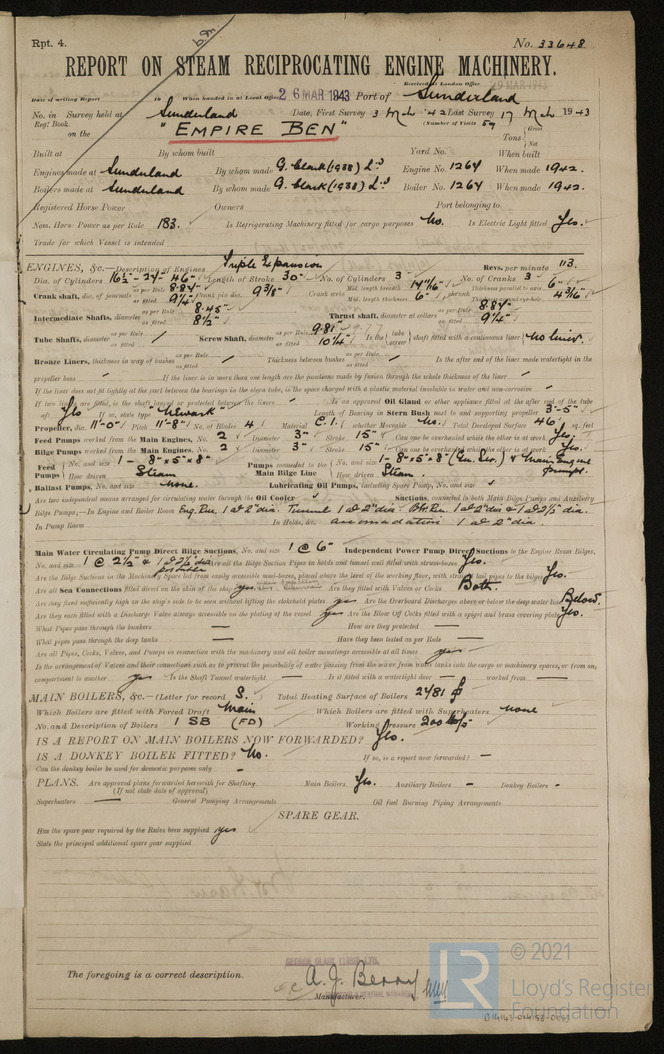 Rpt. 4. No. 33648
REPORT ON STEAM RECIPROCATING ENGINE MACHINERY.
Received at London Office 29 MAR 1943
Date of writing Report 19 When handed in at Local Office 26 MAR 1943 Port of Sunderland
No. in Reg. Book Survey held at Sunderland Date, First Survey 3 Mch '42 Last Survey 17 Mch 1943
on the "EMPIRE BEN" (Number of Visits 59
Tons Gross Net
Built at By whom built Yard No. When built
Engines made at Sunderland By whom made G. Clark (1938) Ltd Engine No. 1264 When made 1942.
Boilers made at Sunderland By whom made G. Clark (1938) Ltd Boiler No. 1264 When made 1942.
Registered Horse Power Owners Port belonging to
Nom. Horse Power as per Rule 183. Is Refrigerating Machinery fitted for cargo purposes No. Is Electric Light fitted Yes.
Trade for which Vessel is intended
ENGINES, &c.—Description of Engines Triple Expansion Revs. per minute 113.
Dia. of Cylinders 16½"-27"-46" Length of Stroke 30" No. of Cylinders 3 No. of Cranks 3
Crank shaft, dia. of journals as per Rule 8.84" as fitted 9¼" Crank pin dia. 9⅜" Crank webs Mid. length breadth 14 11/16" Mid. length thickness 6" shrunk Thickness parallel to axis 6" Thickness around eye-hole 4 3/16"
Intermediate Shafts, diameter as per Rule 8.45 as fitted 8½" Thrust shaft, diameter at collars as per Rule 8.84" as fitted 9¼"
Tube Shafts, diameter as per Rule as fitted Screw Shaft, diameter as per Rule 9.81" as fitted 10¼" Is the tube screw shaft fitted with a continuous liner No liner.
Bronze Liners, thickness in way of bushes as per Rule as fitted Thickness between bushes as per Rule as fitted Is the after end of the liner made watertight in the
propeller boss If the liner is in more than one length are the junctions made by fusion through the whole thickness of the liner
If the liner does not fit tightly at the part between the bearings in the stern tube, is the space charged with a plastic material insoluble in water and non-corrosive
If two liners are fitted, is the shaft lapped or protected between the liners Is an approved Oil Gland or other appliance fitted at the after end of the tube
shaft Yes If so, state type "Newark" Length of Bearing in Stern Bush next to and supporting propeller 3'-5"
Propeller, dia. 11'-0" Pitch 11'-8" No. of Blades 4 Material C.I. whether Moveable No. Total Developed Surface 46 sq. feet
Feed Pumps worked from the Main Engines, No. 2 Diameter 3" Stroke 15" Can one be overhauled while the other is at work Yes.
Bilge Pumps worked from the Main Engines, No. 2 Diameter 3" Stroke 15" Can one be overhauled while the other is at work Yes.
Feed Pumps No. and size 1 - 8" x 5" x 8" How driven Steam Pumps connected to the Main Bilge Line No. and size 1 - 8" x 5" x 8" (Gen. Ser.) & Main Engine pumps. How driven Steam.
Ballast Pumps, No. and size None. Lubricating Oil Pumps, including Spare Pump, No. and size
Are two independent means arranged for circulating water through the Oil Cooler Suctions, connected to both Main Bilge Pumps and Auxiliary
Bilge Pumps;—In Engine and Boiler Room Eng. Rm. 1 at 2" dia. Tunnel 1 at 2" dia. Blr. Rm. 1 at 2" dia & 1 at 2½" dia.
In Pump Room In Holds, &c. accomodation 1 at 2" dia.
Main Water Circulating Pump Direct Bilge Suctions, No. and size 1 @ 6" Independent Power Pump Direct Suctions to the Engine Room Bilges,
No. and size 1 @ 2½" & 1 at 2½" dia portable Are all the Bilge Suction Pipes in holds and tunnel well fitted with strum-boxes Yes.
Are the Bilge Suctions in the Machinery Space led from easily accessible mud-boxes, placed above the level of the working floor, with straight tail pipes to the bilges Yes.
Are all Sea Connections fitted direct on the skin of the ship yes Are they fitted with Valves or Cocks Both.
Are they fixed sufficiently high on the ship's side to be seen without lifting the stokehold plates yes Are the Overboard Discharges above or below the deep water line Below.
Are they each fitted with a Discharge Valve always accessible on the plating of the vessel yes Are the Blow Off Cocks fitted with a spigot and brass covering plate Yes.
What Pipes pass through the bunkers — How are they protected —
What pipes pass through the deep tanks — Have they been tested as per Rule —
Are all Pipes, Cocks, Valves, and Pumps in connection with the machinery and all boiler mountings accessible at all times yes
Is the arrangement of Valves and their connections such as to prevent the possibility of water passing from the sea or from water tanks into the cargo or machinery spaces, or from one
compartment to another yes Is the Shaft Tunnel watertight — Is it fitted with a watertight door — worked from —
MAIN BOILERS, &c.—(Letter for record S. Total Heating Surface of Boilers 2481
Which Boilers are fitted with Forced Draft Main Which Boilers are fitted with Superheaters none
No. and Description of Boilers 1 SB (FD) Working Pressure 200 lb/□"
IS A REPORT ON MAIN BOILERS NOW FORWARDED? Yes.
IS A DONKEY BOILER FITTED? No. If so, is a report now forwarded? —
Can the donkey boiler be used for domestic purposes only —
PLANS. Are approved plans forwarded herewith for Shafting Main Boilers Yes. Auxiliary Boilers - Donkey Boilers -
(If not state date of approval)
Superheaters — General Pumping Arrangements Oil fuel Burning Piping Arrangements
SPARE GEAR.
Has the spare gear required by the Rules been supplied yes
State the principal additional spare gear supplied
GEORGE CLARK (1938) LTD.
The foregoing is a correct description.
A. J. Berry
GENERAL MANAGER
Manufacturer.
LR
© 2021
Lloyd's Register
Foundation